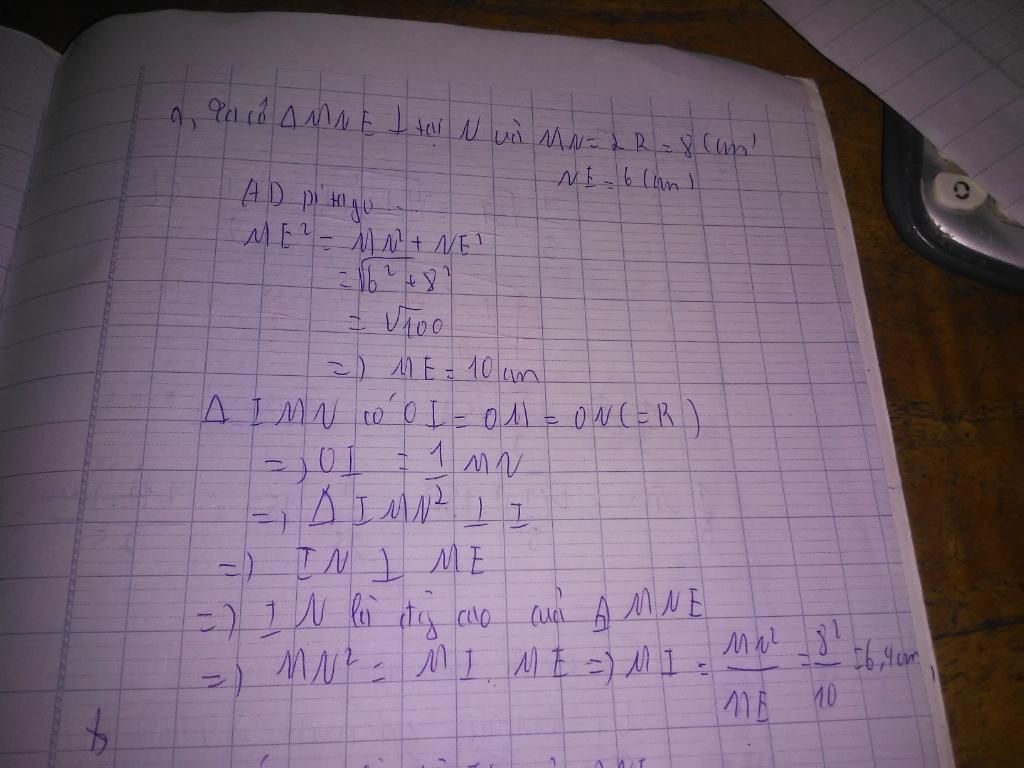 a, Ta có Δ MNE ⊥ tại N và MN = 2R = 8 (cm)
NE = 6 (cm)
AD pi
ME² = MN² + NE²
= √6² + 8²
= √100
=) ME = 10 cm
Δ IMN có OI = OM = ON (= R)
=, OI = 1/2 MN
=, Δ IMN ⊥ I
=) IN ⊥ ME
=) IN là cao của Δ MNE
=) MN² = MI. ME =) MI = MN²/ME = 8²/10 = 6,4 cm
b